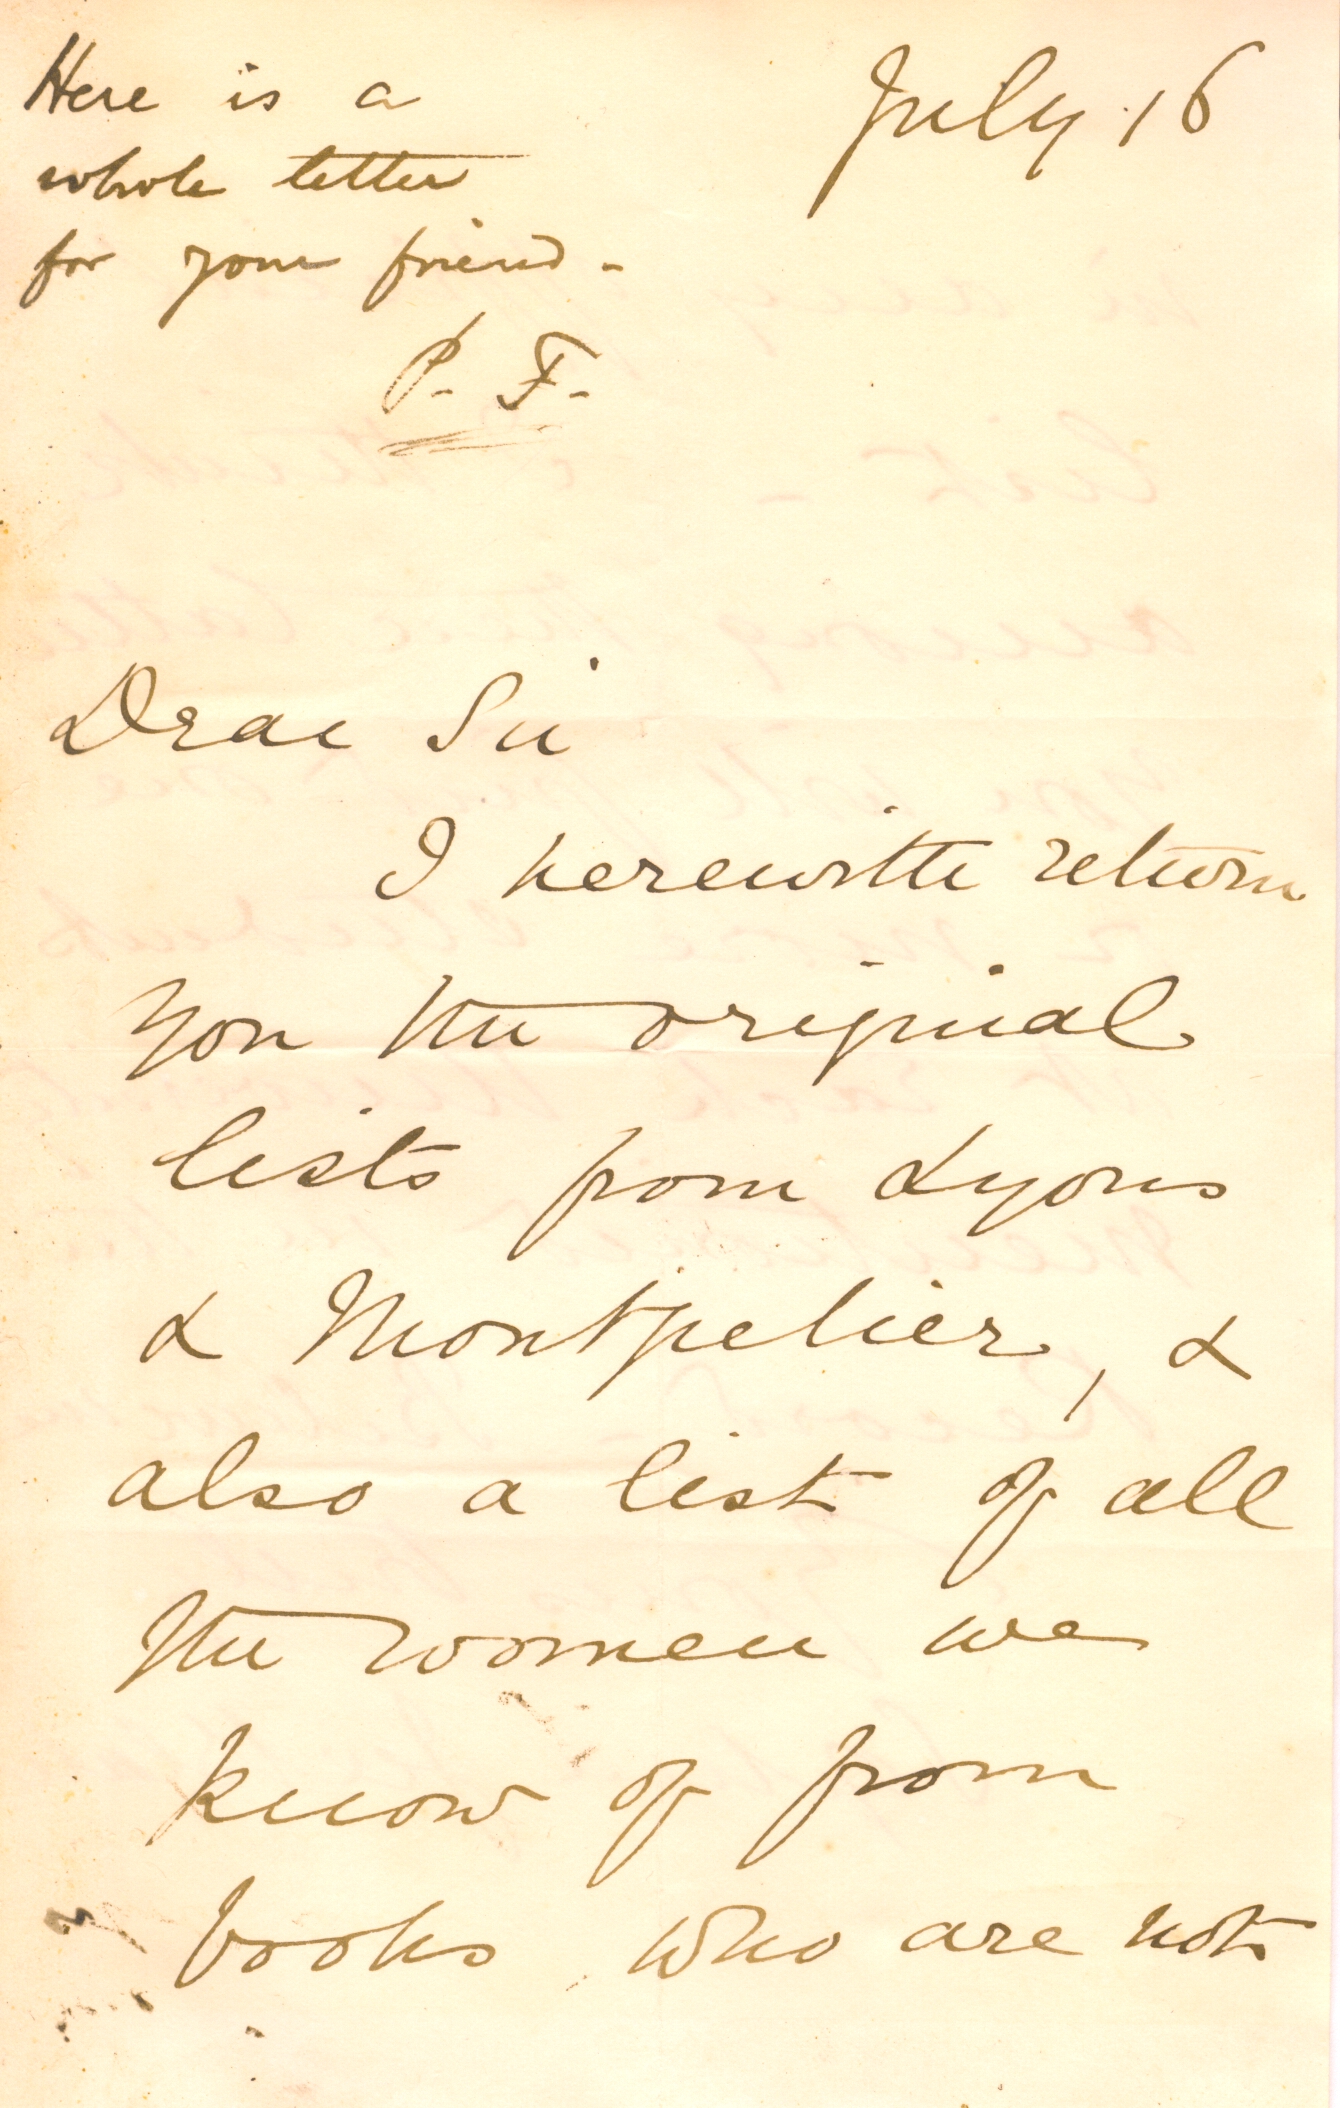 Here is a
whole letter
for your friend -
P. F.
July 16
Dear Sir
I herewith return
you the original
lists from Lyons
& Montpelier, &
also a list of all
the women we
know of from
books who are not